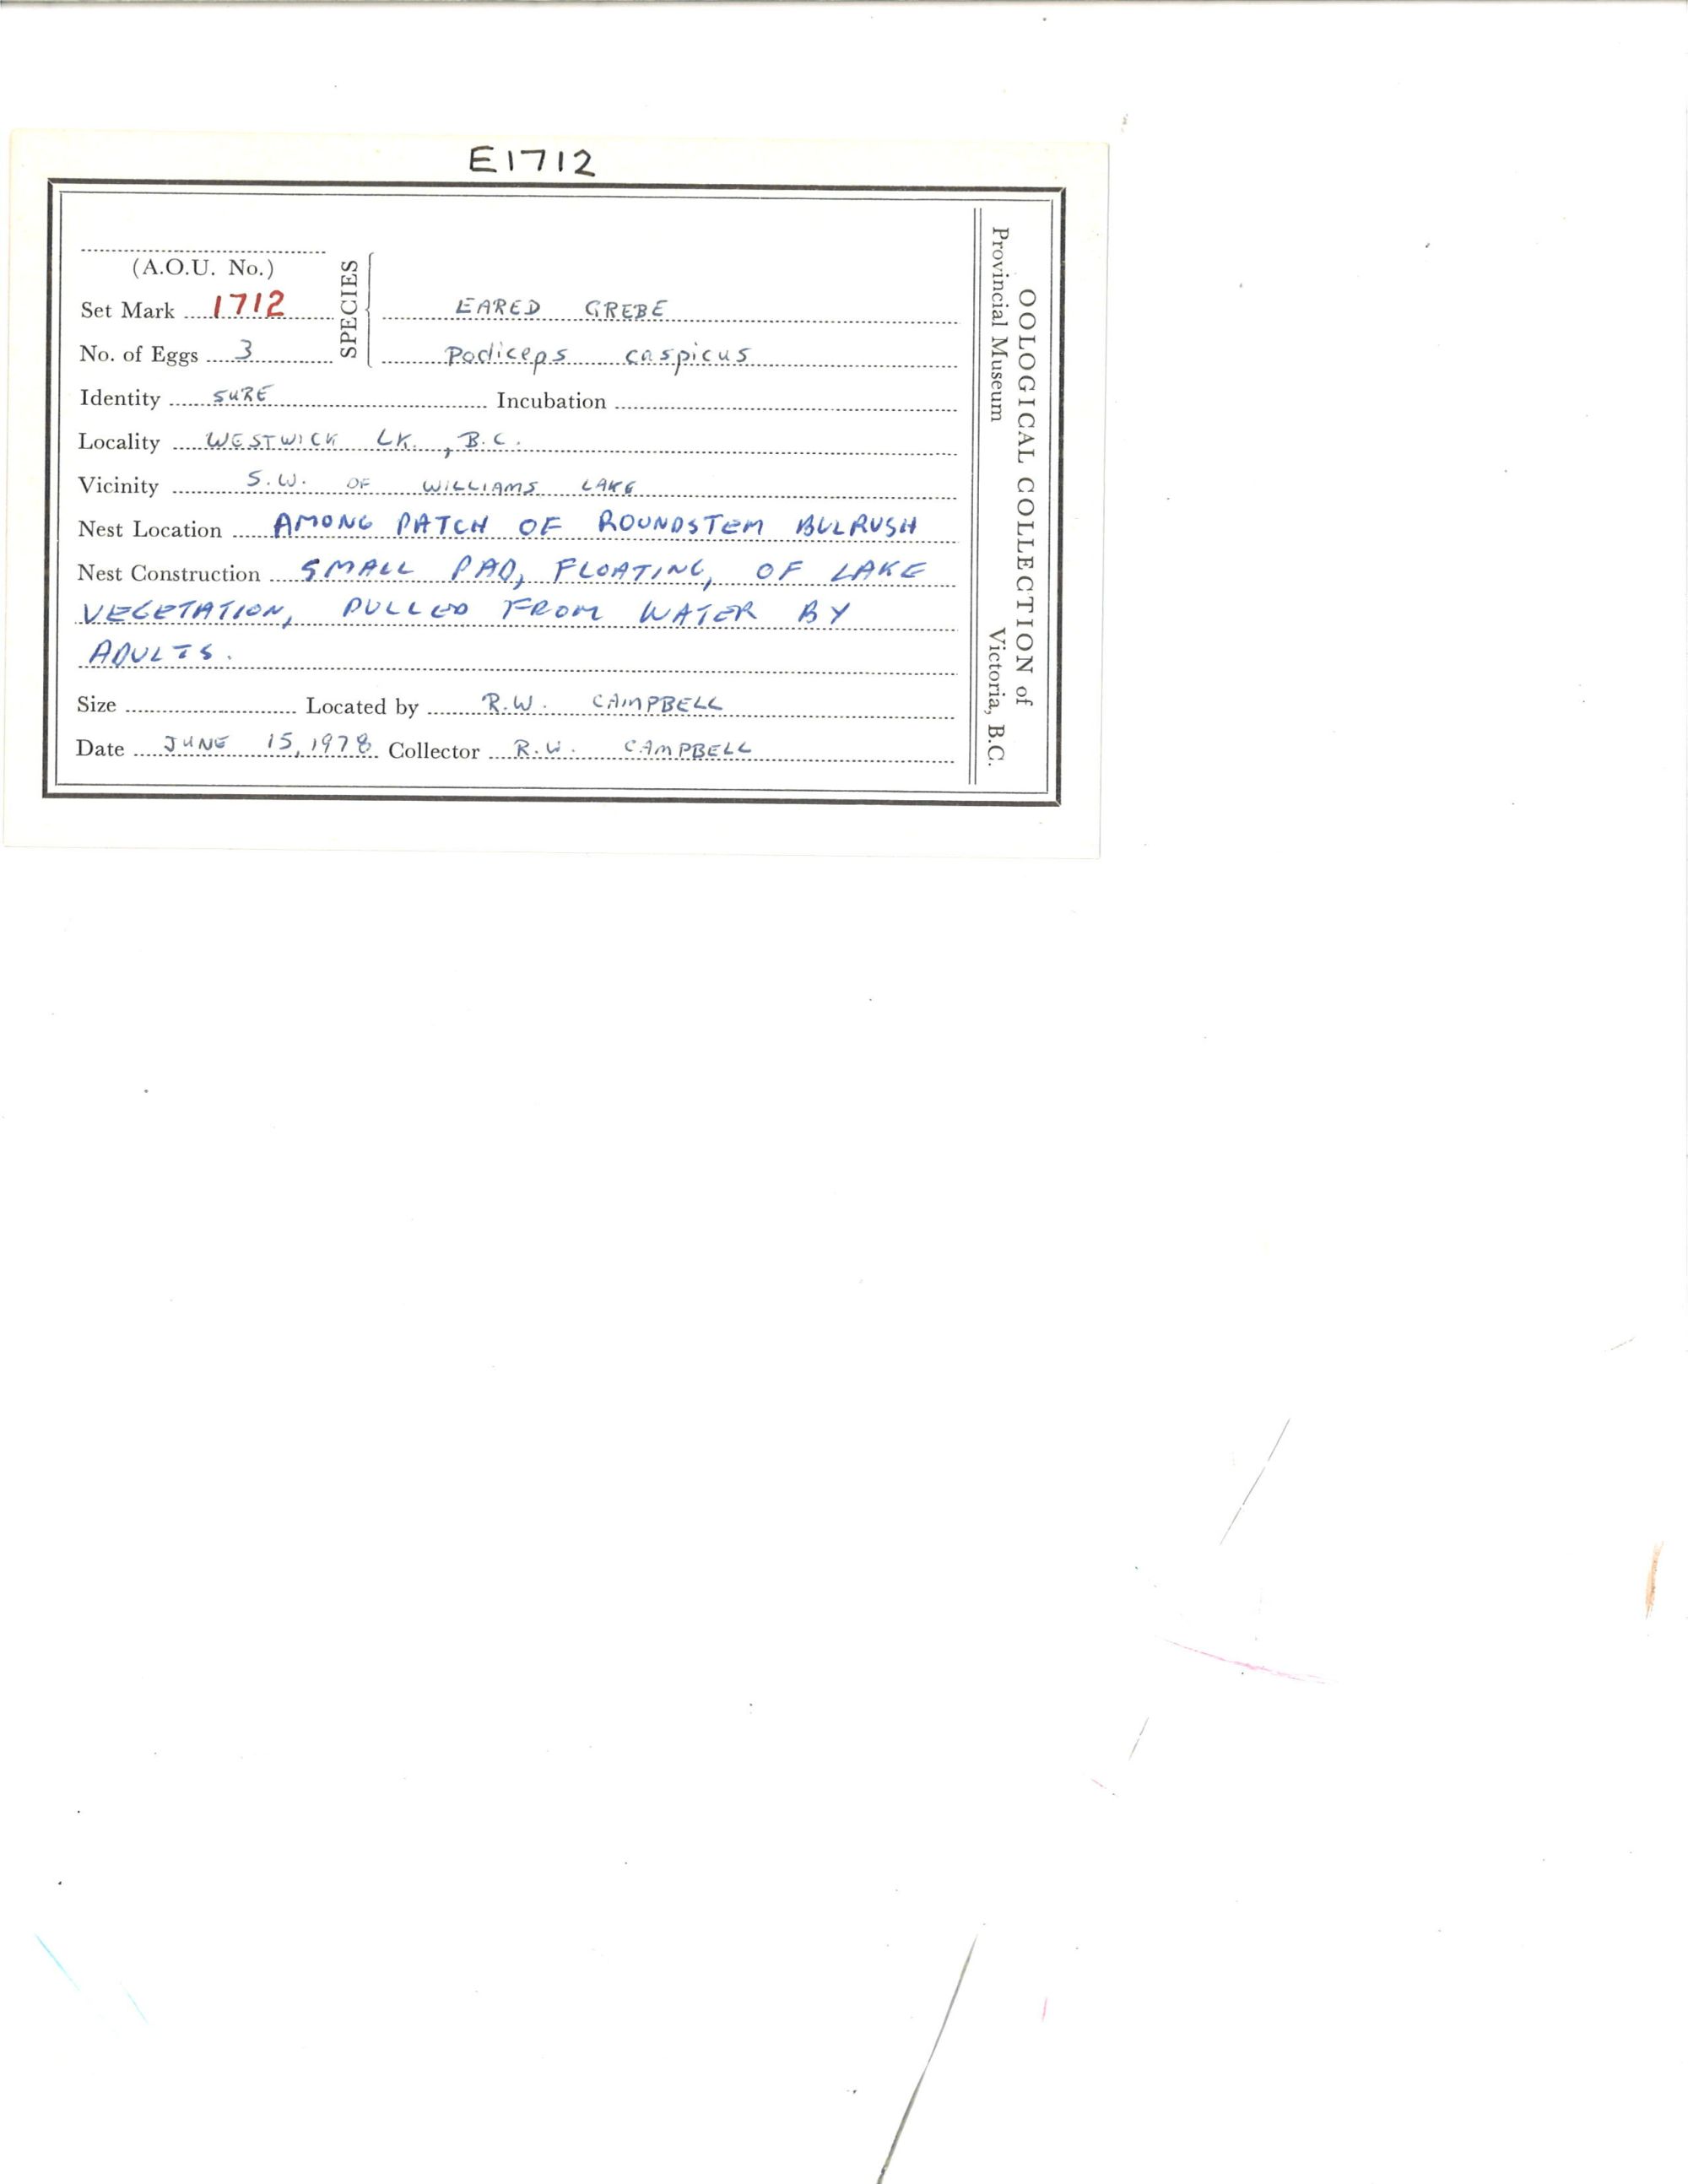 E1712
(A.O.U. No.)
SPECIES
Set Mark 1712 EARED GREBE
No. of Eggs 3 Podiceps caspicus
Identity SURE Incubation
Locality WESTWICK LK., B.C.
Vicinity S.W. OF WILLIAMS LAKE
Nest Location AMONG PATCH OF ROUNDSTEM BULRUSH
Nest Construction SMALL PAD, FLOATING, OF LAKE
VEGETATION, PULLED FROM WATER BY
ADULTS.
Size Located by R.W. CAMPBELL
Date JUNE 15, 1978 Collector R.W. CAMPBELL
OOLOGICAL COLLECTION of
Provincial Museum Victoria, B.C.